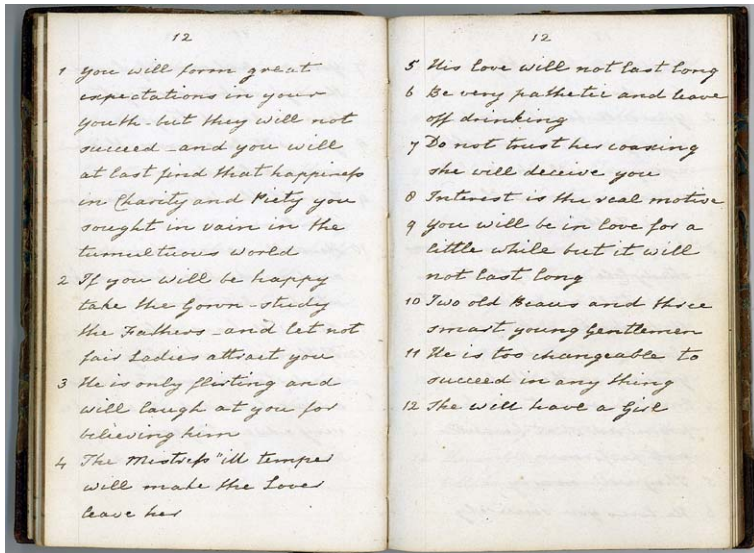 12
1 You will form great
expectations in your
youth - but they will not
succeed - and you will
at last find that happiness
in Charity and Piety you
sought in vain in the
tumultuous world
2 If you will be happy
take the Gown - study
the Fathers - and let not
fair Ladies attract you
3 He is only flirting and
will laugh at you for
believing him
4 The Mistress" ill temper
will make the Lover
leave her
12
5 His love will not last long
6 Be very pathetic and leave
off drinking
7 Do not trust her coaxing
she will deceive you
8 Interest is the real motive
9 You will be in love for a
little while but it will
not last long
10 Two old Beaus and three
smart young Gentlemen
11 He is too changeable to
succeed in any thing
12 She will have a Girl